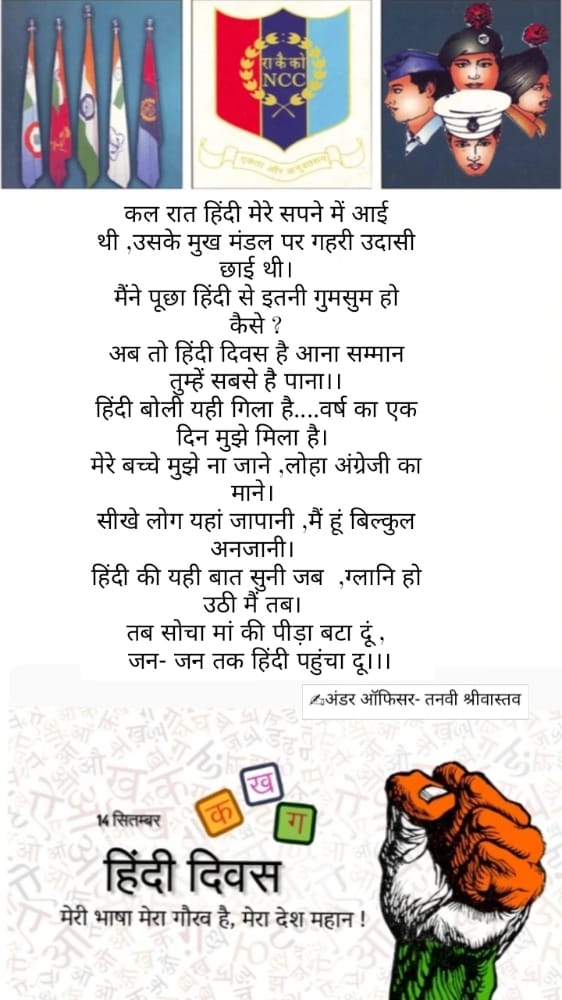 रा कै को
NCC
एकता और अनुशासन
कल रात हिंदी मेरे सपने में आई
थी ,उसके मुख मंडल पर गहरी उदासी
छाई थी।
मैंने पूछा हिंदी से इतनी गुमसुम हो
कैसे ?
अब तो हिंदी दिवस है आना सम्मान
तुम्हें सबसे है पाना।।
हिंदी बोली यही गिला है....वर्ष का एक
दिन मुझे मिला है।
मेरे बच्चे मुझे ना जाने ,लोहा अंग्रेजी का
माने।
सीखे लोग यहां जापानी ,मैं हूं बिल्कुल
अनजानी।
हिंदी की यही बात सुनी जब  ,ग्लानि हो
उठी मैं तब।
तब सोचा मां की पीड़ा बटा दूं ,
जन- जन तक हिंदी पहुंचा दू।।।
✍अंडर ऑफिसर- तनवी श्रीवास्तव
क ख ग
14 सितम्बर
हिंदी दिवस
मेरी भाषा मेरा गौरव है, मेरा देश महान !